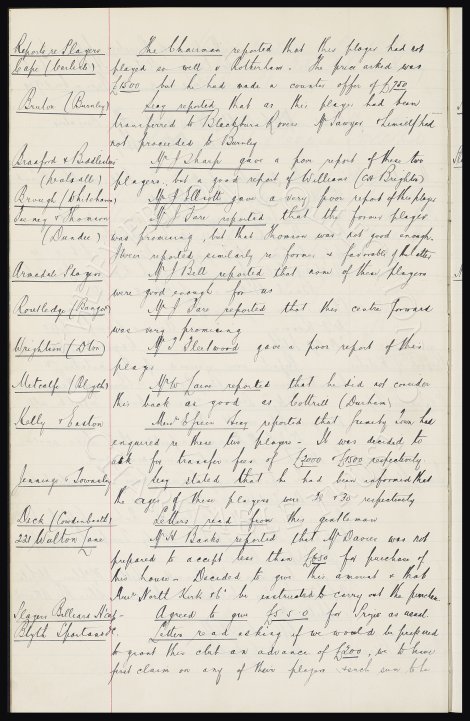 Reports re Players
The Chairman reported that this player had not
Cape (Carlisle)
played so well v Rotherham. The price asked was
£1500 but he had made a counter offer of £750
Bruton (Burnley)
Secy reported that as this player had been
transferred to Blackburn Rovers Mr Sawyer & himself had
not proceeded to Burnley
Bradford &
Mr J Sharp gave a poor report of these two
(Walsall)
players, but a good report of Williams (CH Brighton)
Brough (
Mr J Elliott gave a very poor report of this player
& Thomson
Mr J Fare reported that the former player
(Dundee)
was promising, but that Thomson was not good enough.
reported similarly re former & favorable of the latter
Armadale Players
Mr J Bell reported that none of these players
were good enough for us
Routledge (
Mr J Fare reported that this centre forward
was very promising
Wrightson (Dton)
Mr T Fleetwood gave a poor report of this
player
Metcalfe (Blyth)
Mr W Cairns reported that he did not consider
this back as good as Cottrell (Durham)
Kelly &
Secy reported that Grimsby Town had
enquired re these two players - It was decided to
ask for transfer fees of £2000 & £1500 respectively
Jennings & Townsley
Secy stated that he had been informed that
the ages of these players were & 30 respectively
Deck (Cowdenbeath)
Letters read from this gentleman
221 Walton Lane
Mr H Banks reported that Mr Davies was not
prepared to accept less than £650 for purchase of
his house - Decided to give this amount & that
North Kirk & Co be instructed to carry out the purchase
Players Billiard H'cap -
Agreed to give £5 5 0 for Prizes as usual.
Blyth Spartans FC.
Letter read asking if we would be prepared
to grant this club an advance of £200, we to have
first claim on any of their players & such sum to be